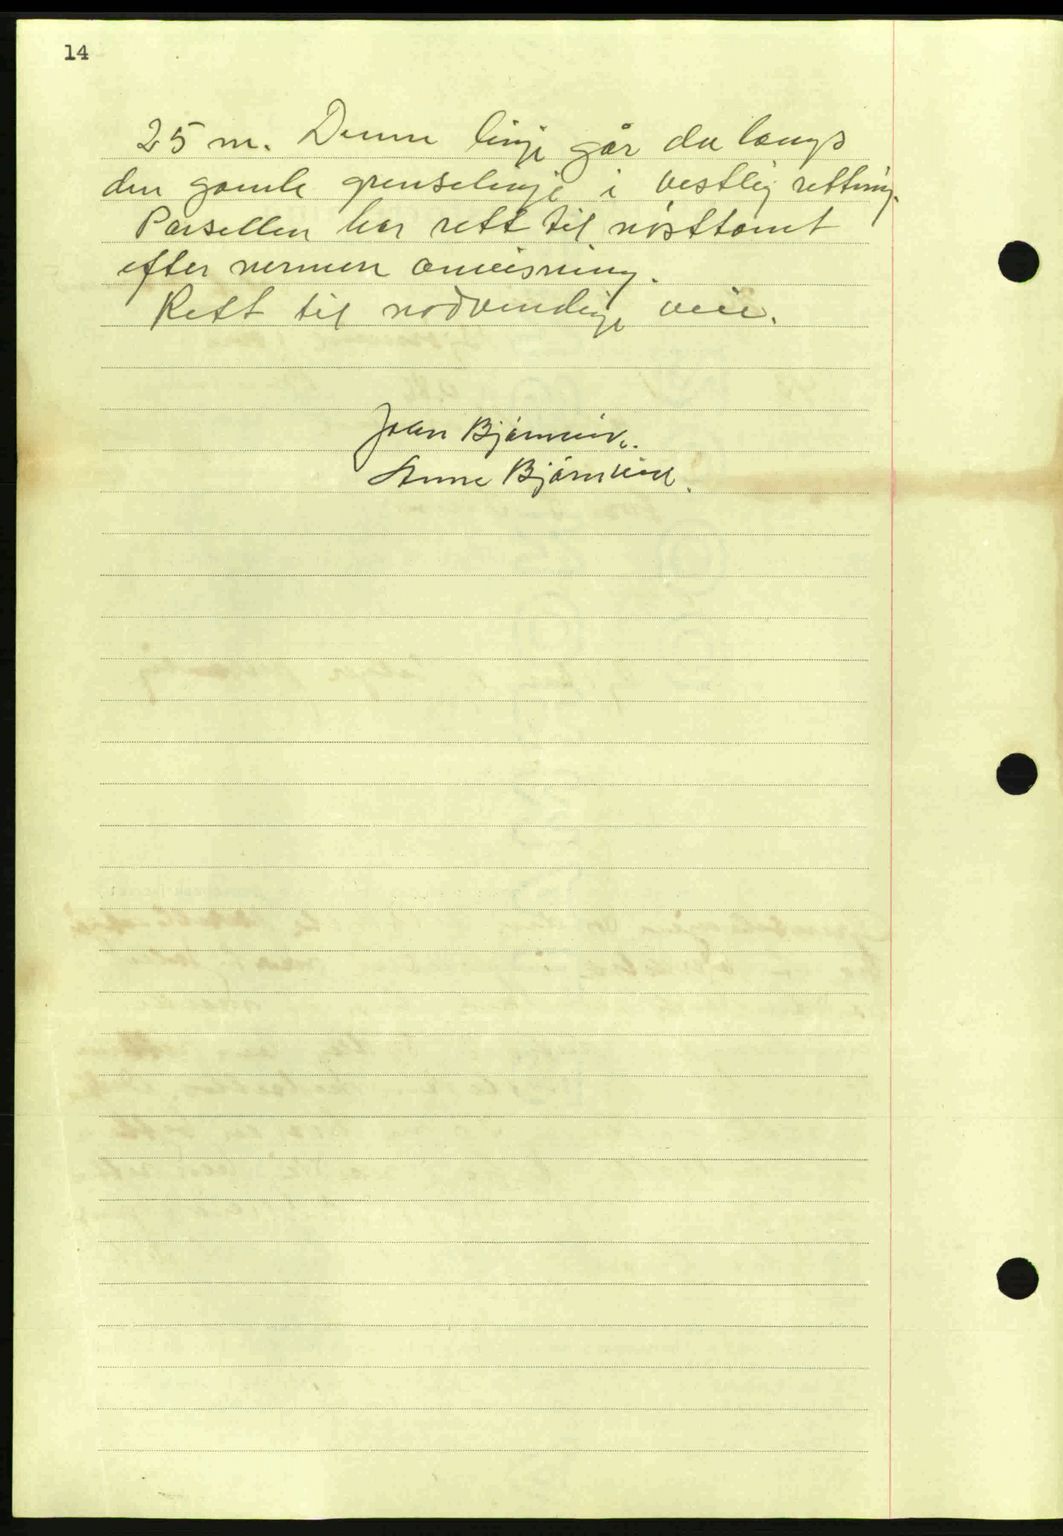 14
25 m. Denne linje går da langs
den gamle grenselinje i vestlig retning.
Parsellen har rett til nøsttomt
efter nermere anvisning.
Rett til nødvendige veie.
Johan Bjørnvik.
Anne Bjørnvik.